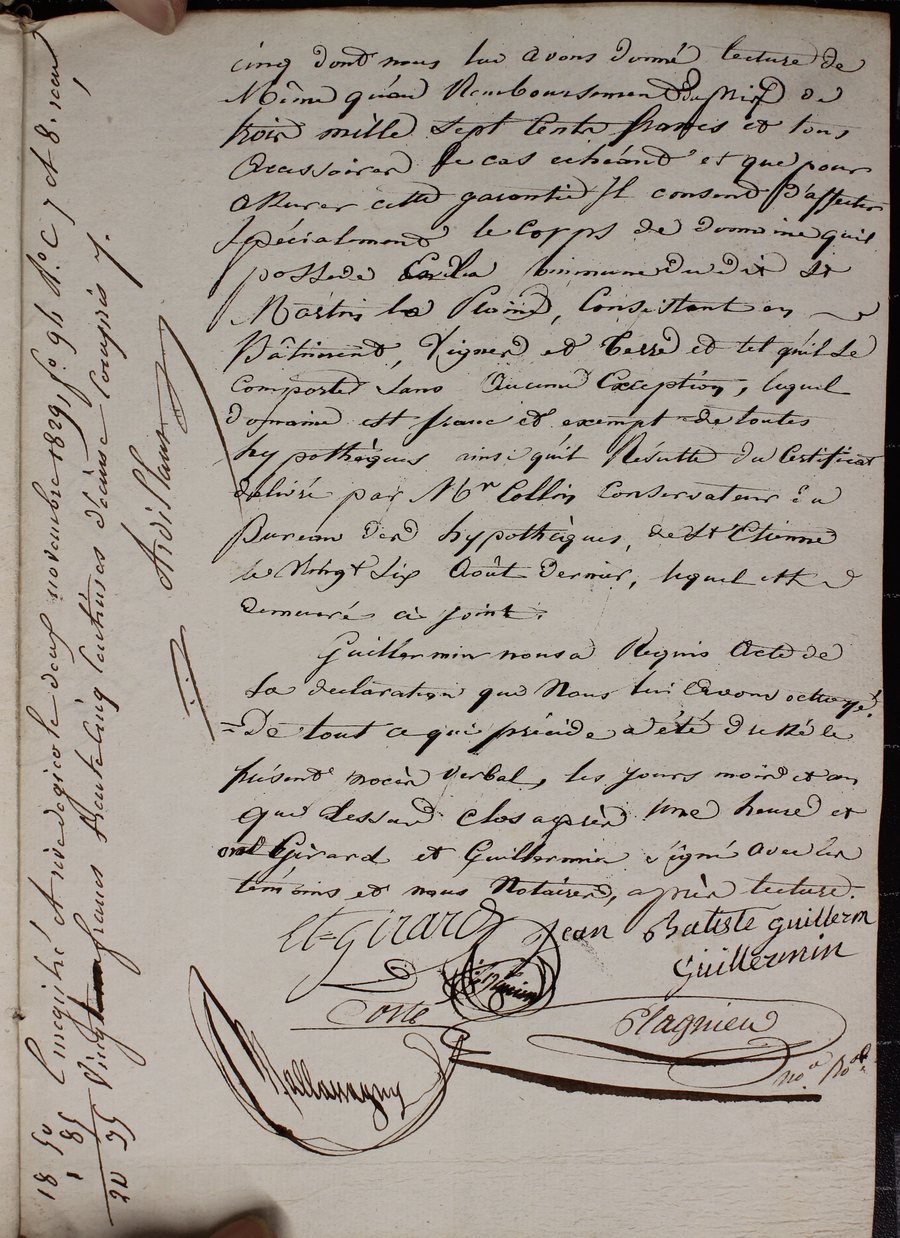 cinq dont nous lui avons donné lecture de
Même qu'au Remboursement du prix de
trois mille sept Cents francs et tous
Accessoires le cas echéant et que pour
assurer cette garantie Il consend d'affecter
Spécialement le corps de domaine qu'il
possede En la commune du dit St
Martin la Plaine, Consistant en
Bâtiments, Vignes et Terres et tel qu'il se
comporte sans Aucune Exception, lequel
domaine est franc et exempt de toutes
hypothèques ainsi qu'il Résulte du Certificat
délivré par Mr Collin Conservateur au
Bureau des hypothèques, de St Etienne
le Vingt Six Août dernier, lequel est
demeuré ci joint.
Guillermin nous a Requis Acte de
Sa déclaration que Nous lui Avons octroyé.
= De tout ce qui précède a été dressé le
présent procès verbal, les jours mois et an
que dessus clos après Une heure et
ont Girard et Guillermin signé avec les
témoins et nous Notaires, après lecture.
Et Girard Jean Batiste guillerm
Guillermin
Coste
Plagnieu
no.e Ro.al
Enregistré A rivedegier le deux novembre 1829, f.o 94 R.o C 7 et 8. reçu
Vingt francs trente cinq centimes dixième compris
Ardillon
18 50
1 85
20 35